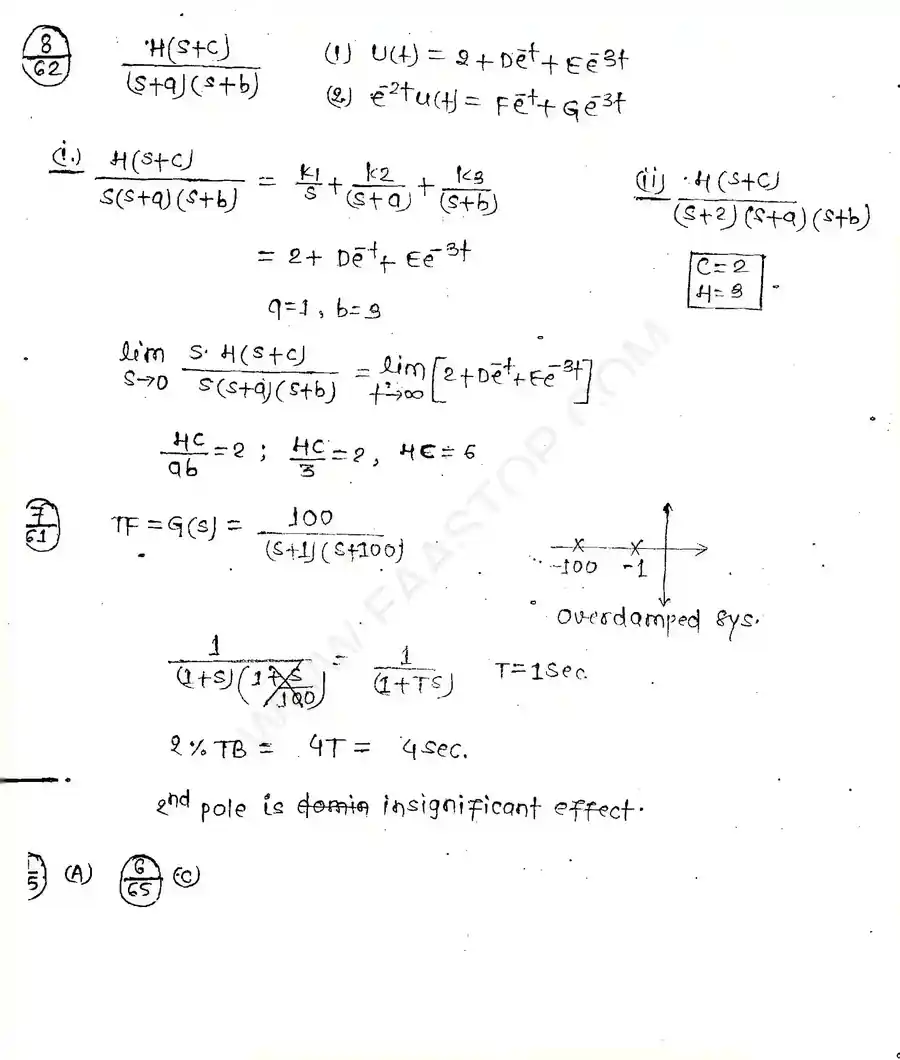 8/62 H(s+c)/(s+a)(s+b) (1) U(t) = 2 + De^-t + Ee^-3t
(2) e^-2t U(t) = Fe^-t + Ge^-3t
(i.) H(s+c)/s(s+a)(s+b) = k1/s + k2/(s+a) + k3/(s+b) (ii) H(s+c)/(s+2)(s+a)(s+b)
= 2 + De^-t + Ee^-3t
C=2
H=3
a=1, b=3
lim s→0 s·H(s+c)/s(s+a)(s+b) = lim t→∞ [2+De^-t+Ee^-3t]
HC/ab = 2 ; HC/3 = 2, HC = 6
7/61 TF = G(s) = 100/(s+1)(s+100)
-100 -1
overdamped sys.
1/(1+s)(1+s/100) = 1/(1+Ts) T=1sec
2% TB = 4T = 4sec.
2nd pole is domin insignificant effect.
5 (A) 6/65 (C)
WWW.FAASTOP.COM